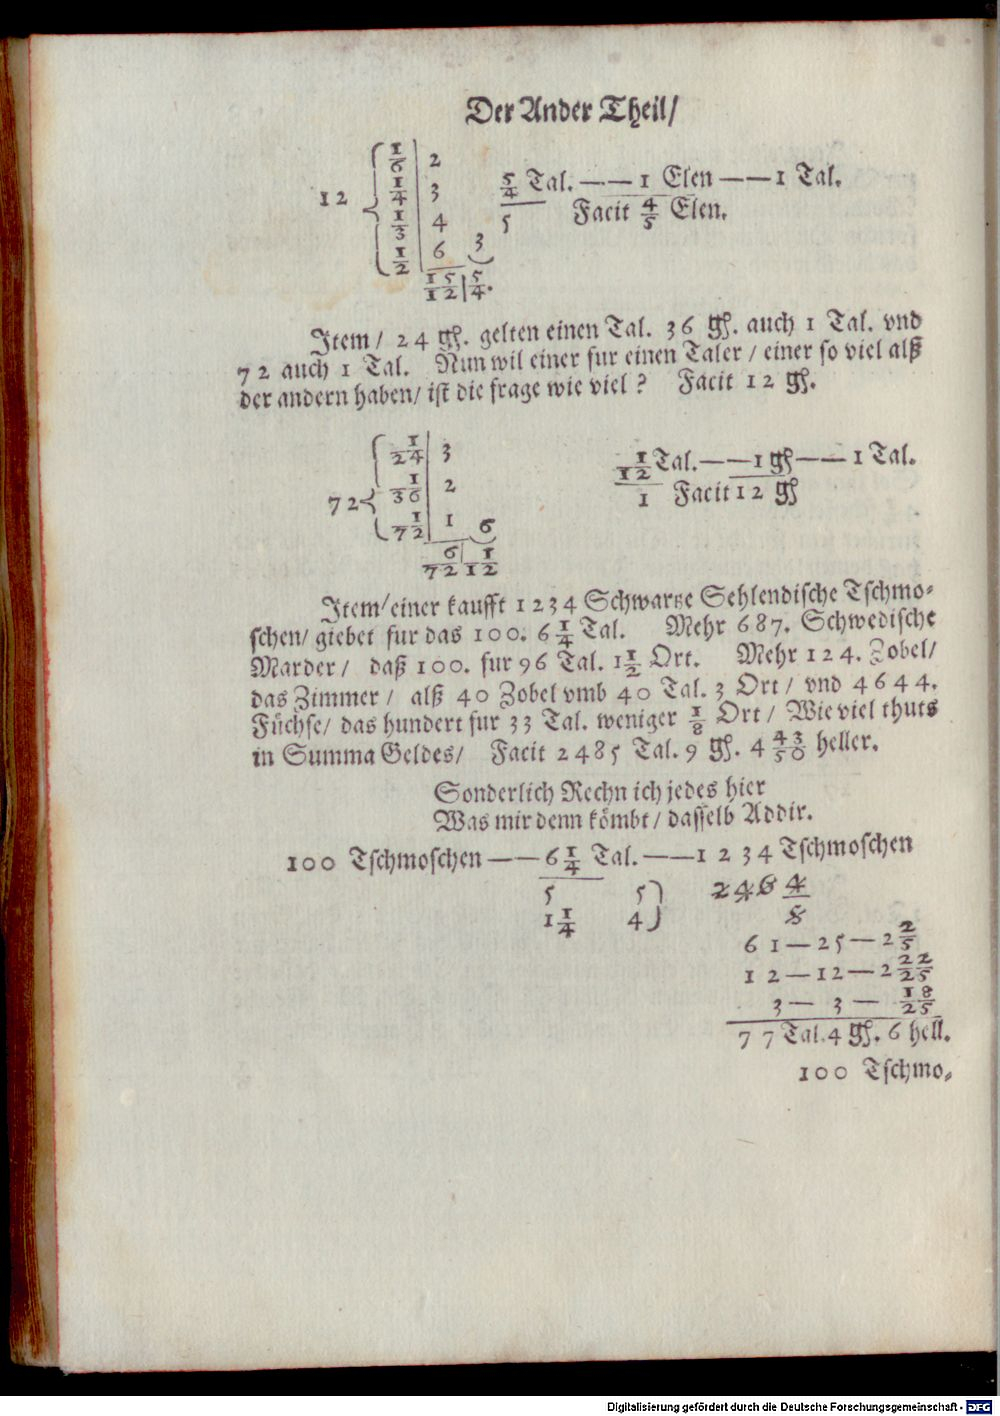 Der Ander Theil/
12 { 1/6 | 2
1/4 | 3
1/3 | 4
1/2 | 6 3
15/12 | 5/4.
5/4 Tal. —— 1 Elen —— 1 Tal.
5 Facit 4/5 Elen.
Item/ 24 gß. gelten einen Tal. 36 gß. auch 1 Tal. vnd
72 auch 1 Tal. Nun wil einer fur einen Taler / einer so viel alß
der andern haben/ ist die frage wie viel ? Facit 12 gß.
72 { 1/24 | 3
1/36 | 2
1/72 | 1 6
6/72 | 1/12
1/12 Tal. —— 1 gß —— 1 Tal.
1 Facit 12 gß
Item/ einer kaufft 1234 Schwartze Sehlendische Tschmo-
schen/ giebet fur das 100. 6 1/4 Tal. Mehr 687. Schwedische
Marder / daß 100. fur 96 Tal. 1 1/2 Ort. Mehr 124. Zobel/
das Zimmer / alß 40 Zobel vmb 40 Tal. 3 Ort / vnd 4644.
Füchse/ das hundert fur 33 Tal. weniger 1/8 Ort / Wie viel thuts
in Summa Geldes/ Facit 2485 Tal. 9 gß. 4 43/50 heller.
Sonderlich Rechn ich jedes hier
Was mir denn kömbt / dasselb Addir.
100 Tschmoschen —— 6 1/4 Tal. —— 1234 Tschmoschen
5 5) 2468 4
1 1/4 4) 5
61 — 25 — 2 2/5
12 — 12 — 2 22/25
3 — 3 — 18/25
77 Tal. 4 gß. 6 hell.
100 Tschmo-
Digitalisierung gefördert durch die Deutsche Forschungsgemeinschaft - DFG